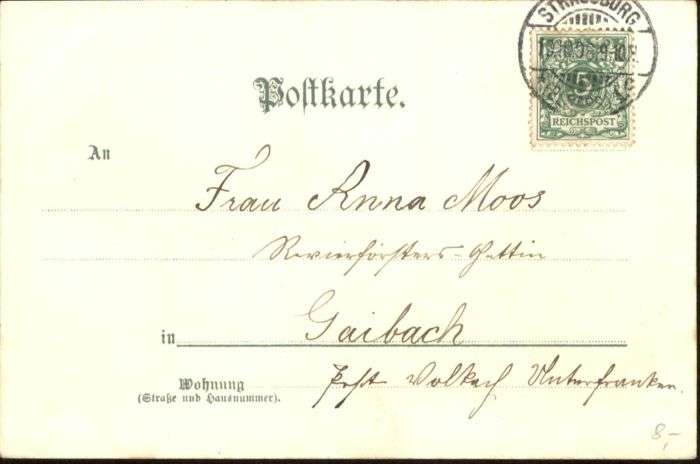 STRASSBURG
5
REICHSPOST
Postkarte.
An
Frau Anna Moos
Revierförsters-Gattin
in Gaibach
Wohnung
(Straße und Hausnummer).
Post Volkach Unterfranken.
8,-